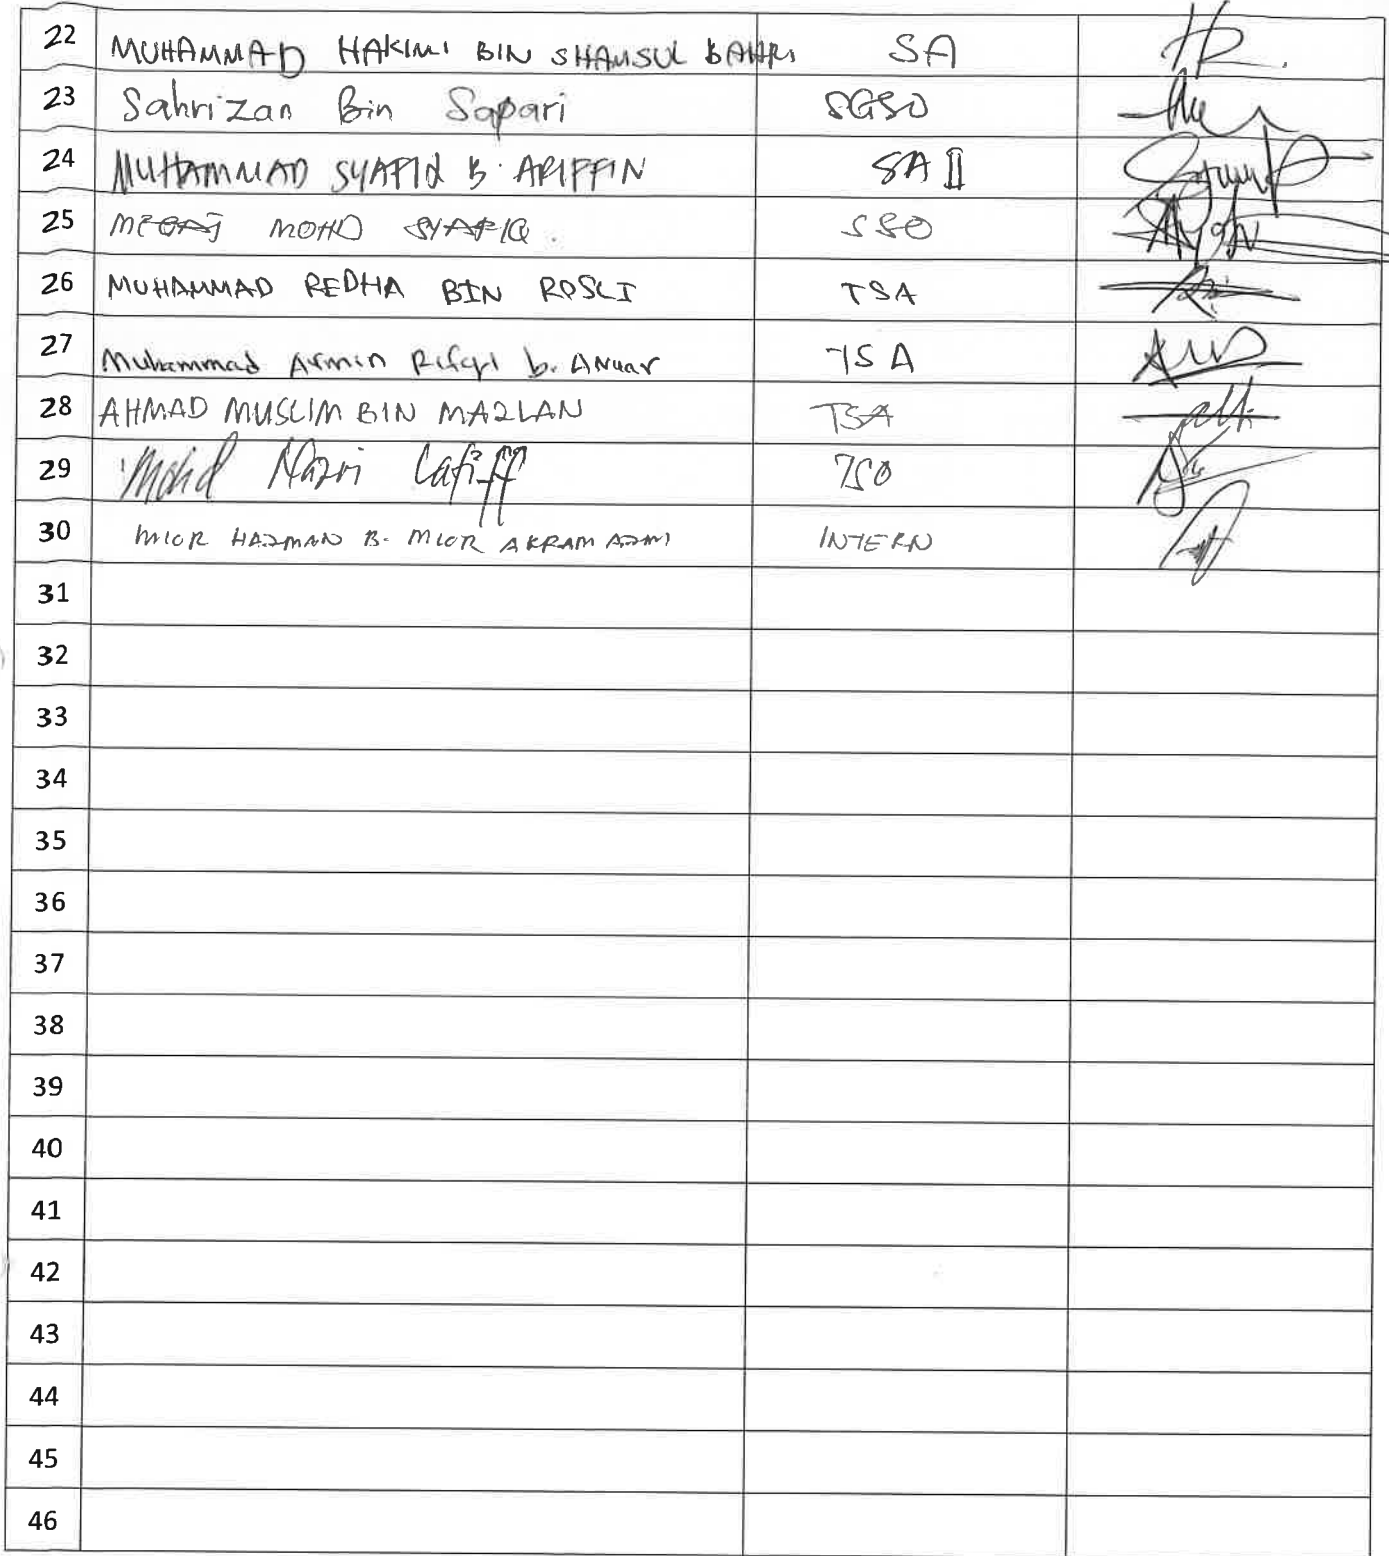 22 MUHAMMAD HAKIMI BIN SHAMSUL BAHRI SA
23 Sahrizan Bin Sapari SGSO
24 MUHAMMAD SYAFIQ B. ARIFFIN SA II
25 MEGAT MOHD SYAFIQ. SSO
26 MUHAMMAD REDHA BIN ROSLI TSA
27 Muhammad Armin Rifqi b. Anuar TSA
28 AHMAD MUSLIM BIN MAZLAN TSA
29 Mohd Nazri Lafiff TSO
30 MIOR HAZMAN B. MIOR AKRAM AZMI INTERN
31
32
33
34
35
36
37
38
39
40
41
42
43
44
45
46